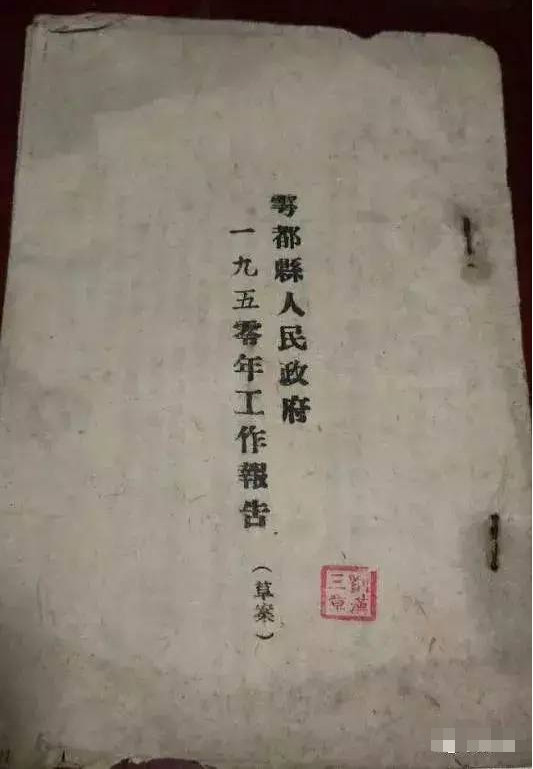 雩都縣人民政府
一九五零年工作報告
（草案）